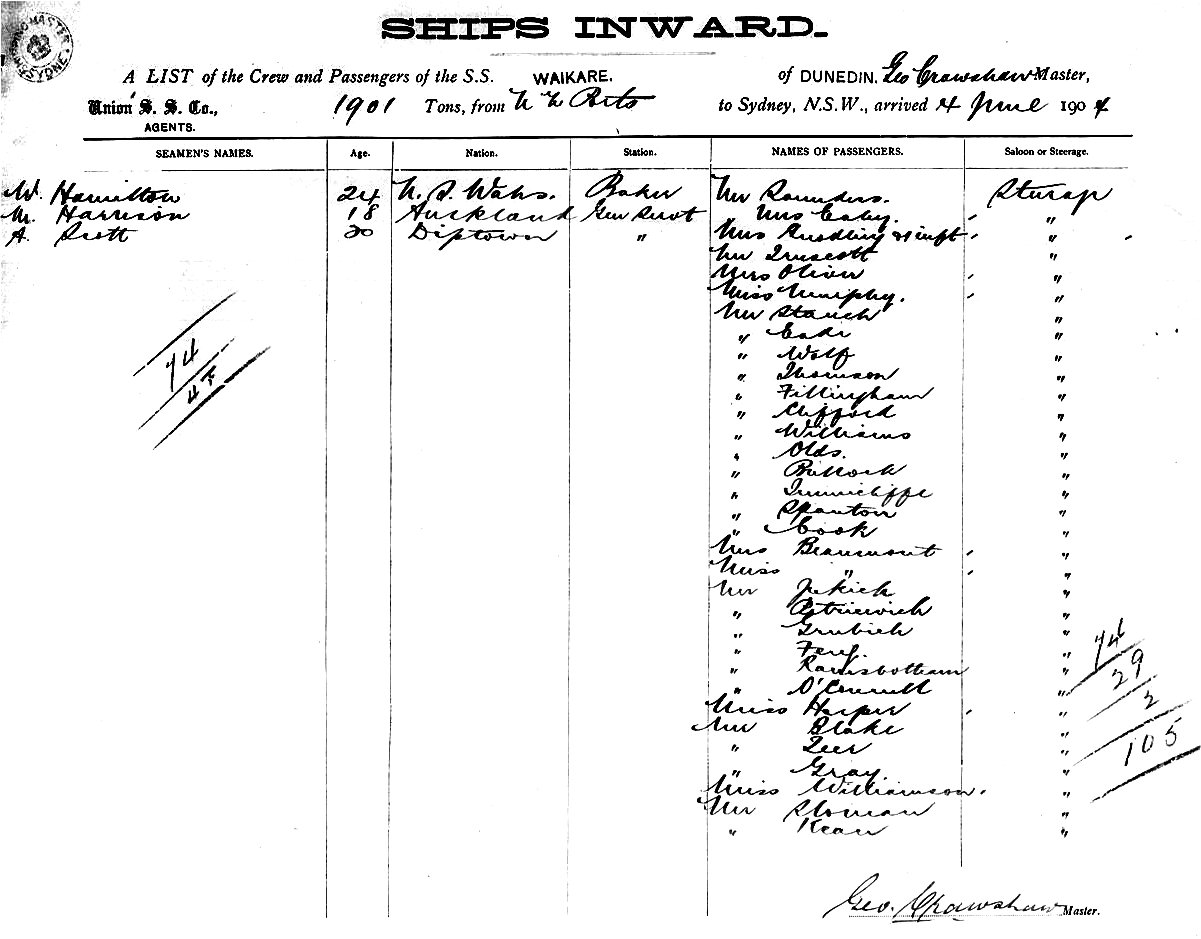 SHIPS INWARD.
A LIST of the Crew and Passengers of the S.S. WAIKARE. of DUNEDIN, Geo Crawshaw Master,
Union S. S. Co., 1901 Tons, from N Z Ports to Sydney, N.S.W., arrived 4 June 1904
AGENTS.
SEAMEN'S NAMES. Age. Nation. Station. NAMES OF PASSENGERS. Saloon or Steerage.
W. Hamilton 24 N. S. Wales. Baker Mr Saunders. Steerage
M. Harrison 18 Auckland Gen Servt " Mrs "
A. Scott 20 " Mrs & inft "
Mr Truscott "
Mrs Oliver "
Miss Murphy. "
Mr "
" Eade "
" Wolf "
" Thomson "
" Fillingham "
" Clifford "
" Williams "
" Olds. "
" Bullock "
" Tunnicliffe "
" Spanton "
" Cook "
Mrs Beaumont "
Miss " "
Mr Jukich "
" "
" Grubich "
" "
" Ramsbotham "
" O'Connell "
Miss Harper "
Mr Blake "
" "
" Gray. "
Miss Williamson. "
Mr Sloman "
" Kean "
74
47
74
29
2
105
Geo. Crawshaw Master.